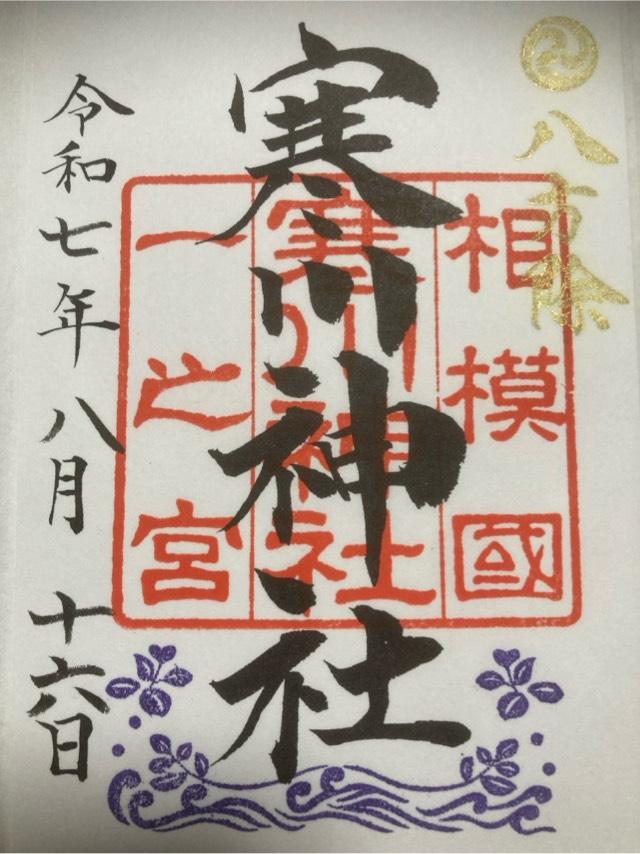 八方除
相模國
寒川神社
一之宮
寒川神社
令和七年八月十六日